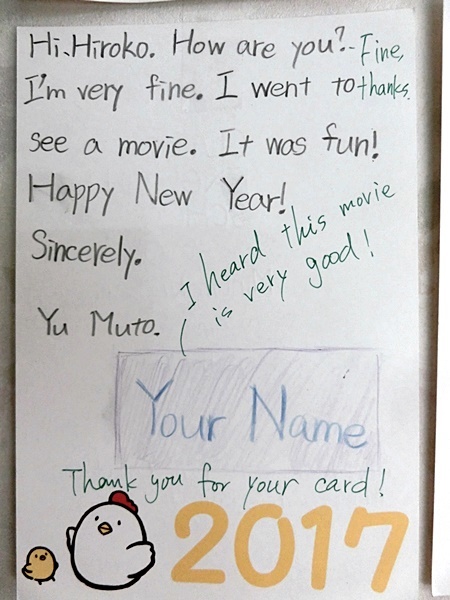 Hi, Hiroko. How are you? Fine,
I'm very fine. I went to thanks.
see a movie. It was fun!
Happy New Year!
Sincerely.
I heard this movie
is very good!
Yu Muto.
Your Name
Thank you for your card!
2017